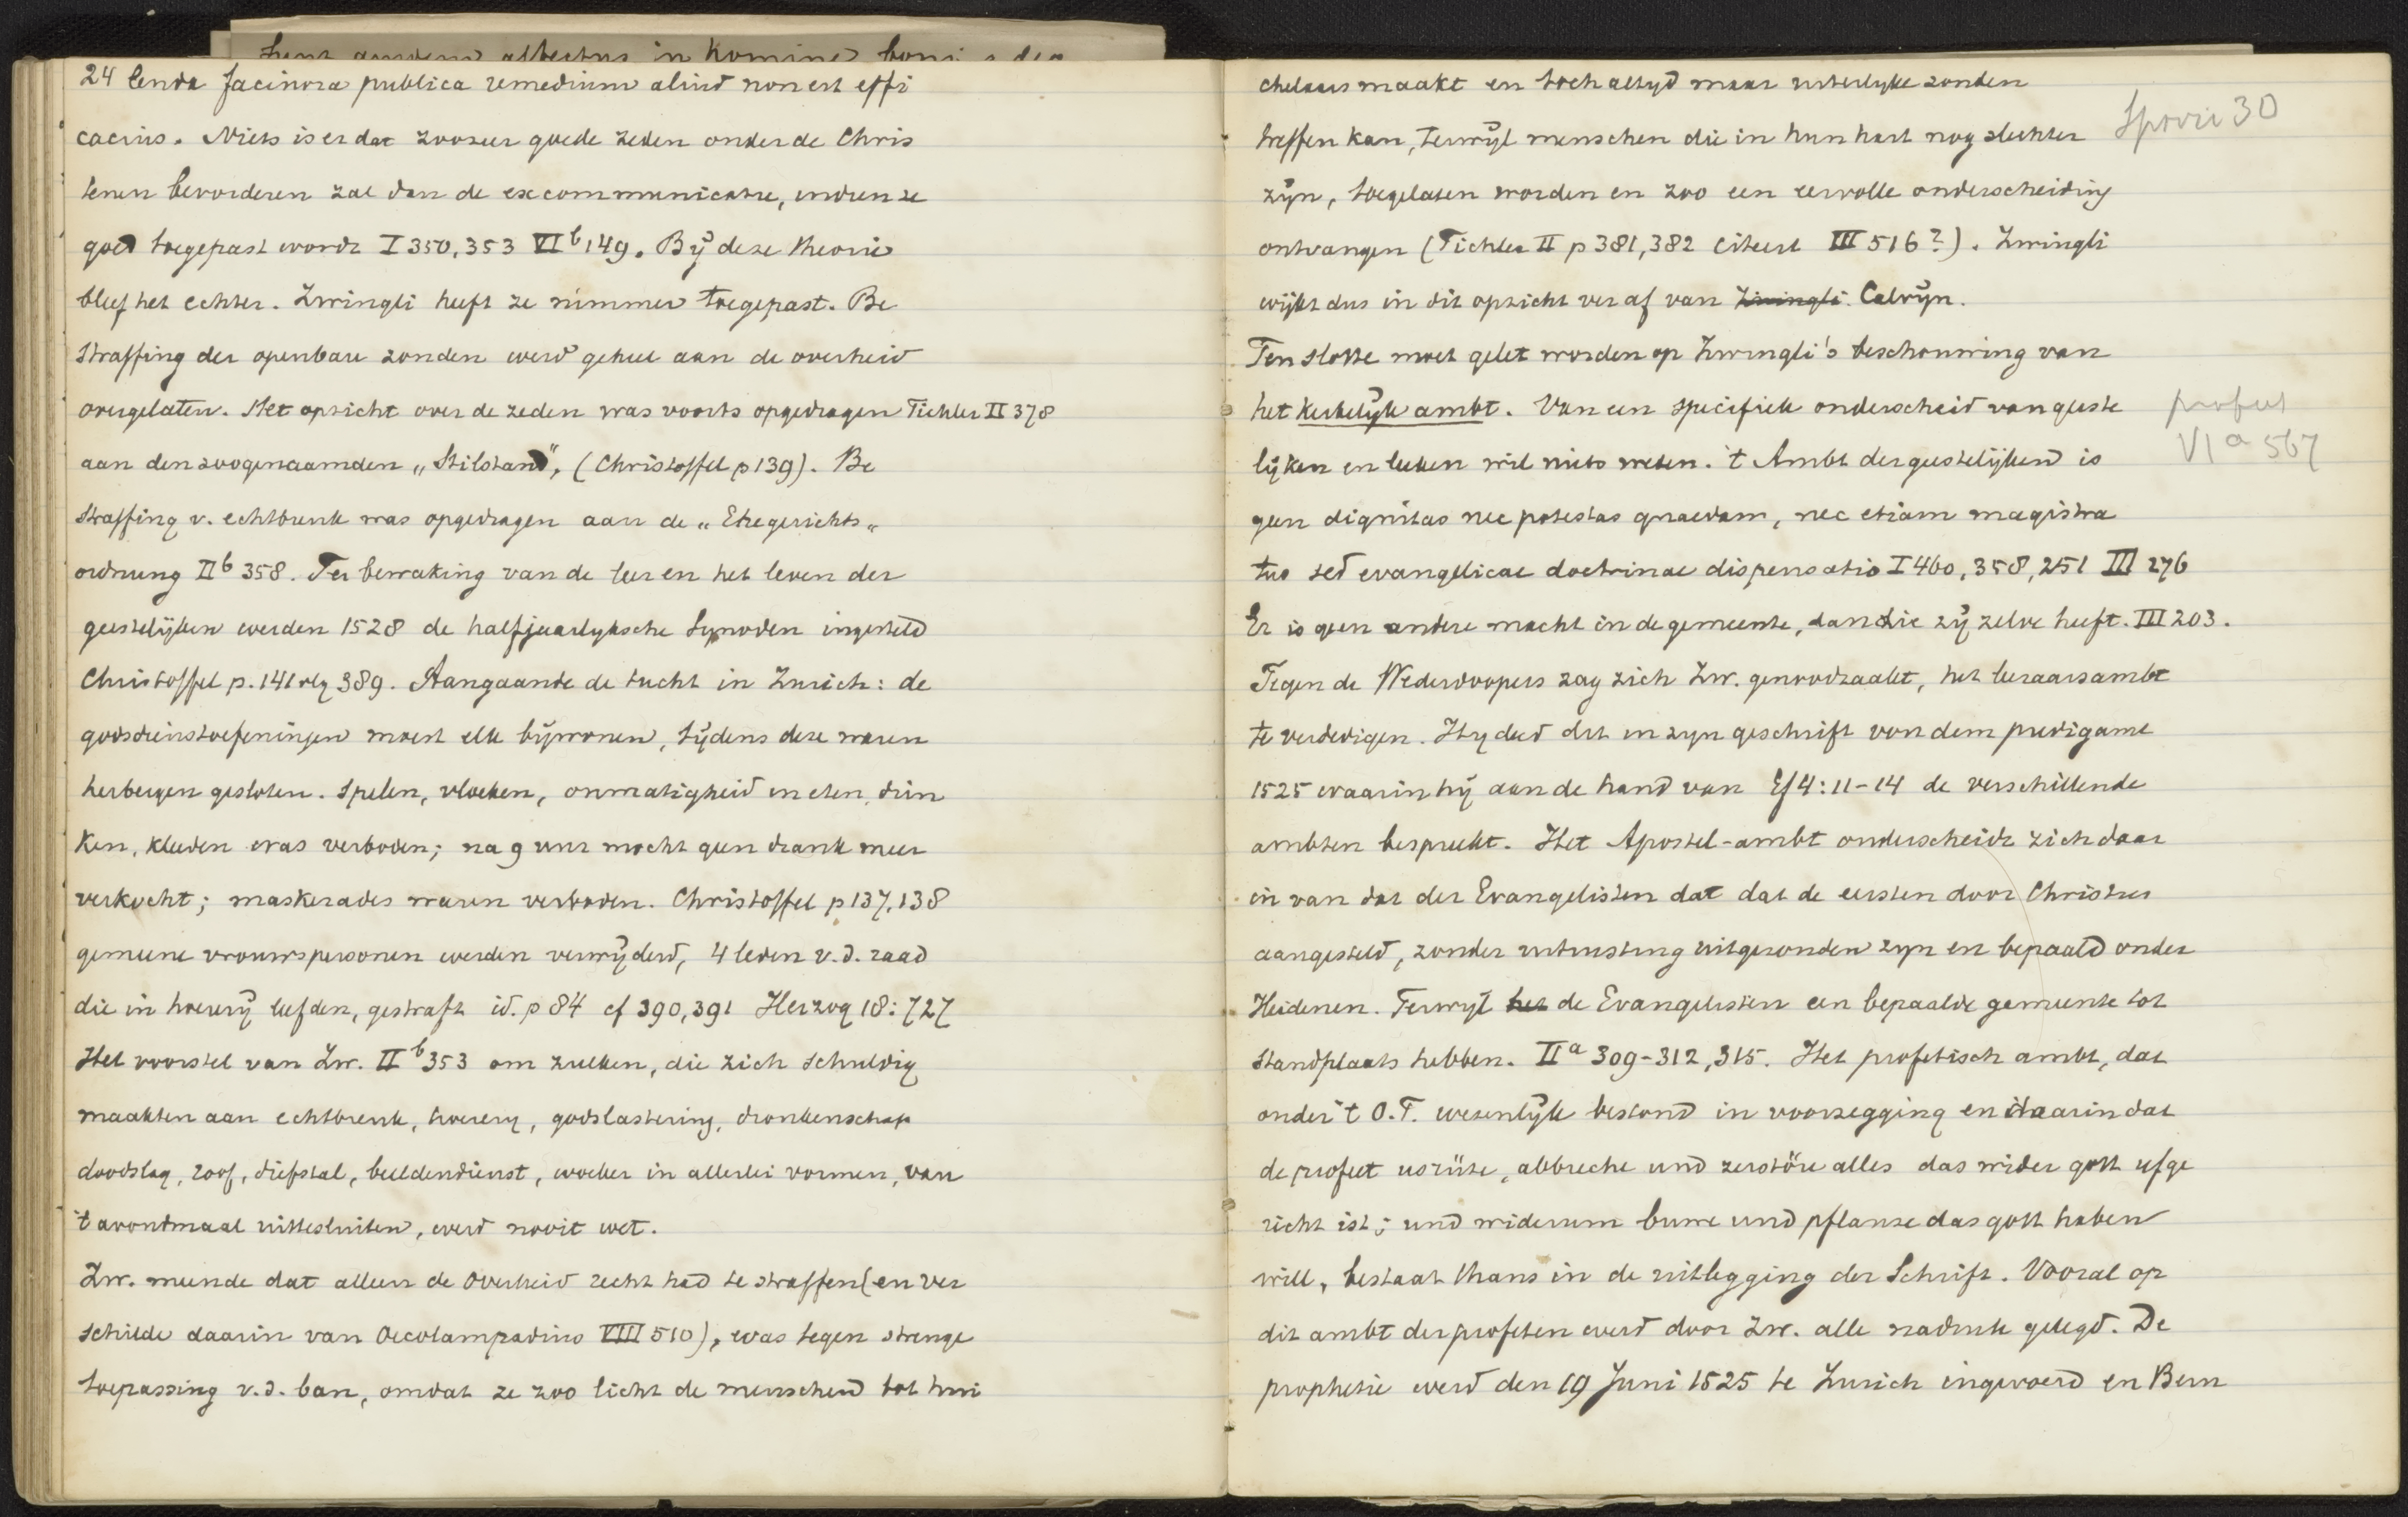 24 lenda facinora publica remedium aliud non est effi
cacius. Niets is er dat zoozeer goede zeden onder de Chris
tenen bevorderen zal dan de excommunicatie, indien ze
goed toegepast wordt I 350, 353 VI b 149. Bij deze theorie
bleef het echter. Zwingli heeft ze nimmer toegepast. Be
straffing der openbare zonden werd geheel aan de overheid
overgelaten. Het opzicht over de zeden was voorts opgedragen Tichler II 378
aan den zoogenaamden „Stilstand", (Christoffel p 139). Be
straffing v. echtbreuk was opgedragen aan de „Ehegerichts„
ordnung II b 358. Ter bewaking van de leer en het leven der
geestelijken werden 1528 de halfjaarlyksche Synoden ingesteld
Christoffel p. 141 vlg 389. Aangaande de tucht in Zurich: de
godsdienstoefeningen moest elk bijwonen, tijdens deze waren
herbergen gesloten. Spelen, vloeken, onmatigheid in eten, drin
ken, kleeden was verboden; na 9 uur mocht geen drank meer
verkocht; maskerades waren verboden. Christoffel p 137, 138
gemeene vrouwspersonen werden verwijderd, 4 leden v.d. raad
die in hoererij leefden, gestraft id. p 84 cf 390, 391 Herzog 18: 727
Het voorstel van Zw. II b 353 om zulken, die zich schuldig
maakten aan echtbreuk, hoerery, godslastering, dronkenschap
doodslag, roof, diefstal, beeldendienst, woeker in allerlei vormen, van
't avondmaal uittesluiten, werd nooit wet.
Zw. meende dat alleen de Overheid recht had te straffen (en ver
schilde daarin van Oecolampadius VIII 510), was tegen strenge
toepassing v.d. ban, omdat ze zoo licht de menschen tot hui
chelaars maakt en toch altyd maar uiterlyke zonden
treffen kan, terwijl menschen die in hun hart nog slechter
zijn, toegelaten worden en zoo een eervolle onderscheiding
ontvangen (Tichler II p 381, 382 citeert III 516?). Zwingli
wijkt dus in dit opzicht ver af van Zwingli. Calvijn.
Ten slotte moet gelet worden op Zwingli's beschouwing van
het kerkelijk ambt. Van een specifiek onderscheid van geeste
lijken en leeken wil niets weten. 't Ambt der geestelijken is
geen dignitas nec potestas quaedam, nec etiam magistra
tus sed evangelicae doctrinae dispensatio I 460, 358, 251 III 276
Er is geen andere macht in de gemeente, dan die zij zelve heeft. III 203.
Tegen de Wederdoopers zag zich Zw. genoodzaakt, het leeraarsambt
te verdedigen. Hij deed dit in zyn geschrift von dem predigamt
1525 waarin hij aan de hand van Ef 4: 11-14 de verschillende
ambten bespreekt. Het Apostel-ambt onderscheidt zich daar
in van dat der Evangelisten dat dat de eersten door Christus
aangesteld, zonder uitrusting uitgezonden zyn en bepaald onder
Heidenen. Terwyl het de Evangelisten een bepaalde gemeente tot
standplaats hebben. II a 309-312, 315. Het profetisch ambt, dat
onder 't O.T. wezenlijk bestond in voorzegging en daarin dat
de profeet usrüte, abbreche und zerstöre alles das wider gott ufge
richt ist; und widerum buwe und pflanze das gott haben
will, bestaat thans in de uitlegging der Schrift. Vooral op
dit ambt der profeten werd door Zw. alle nadruk gelegd. De
prophetie werd den 19 Juni 1525 te Zurich ingevoerd en Bern
30
profeet
VI a 567